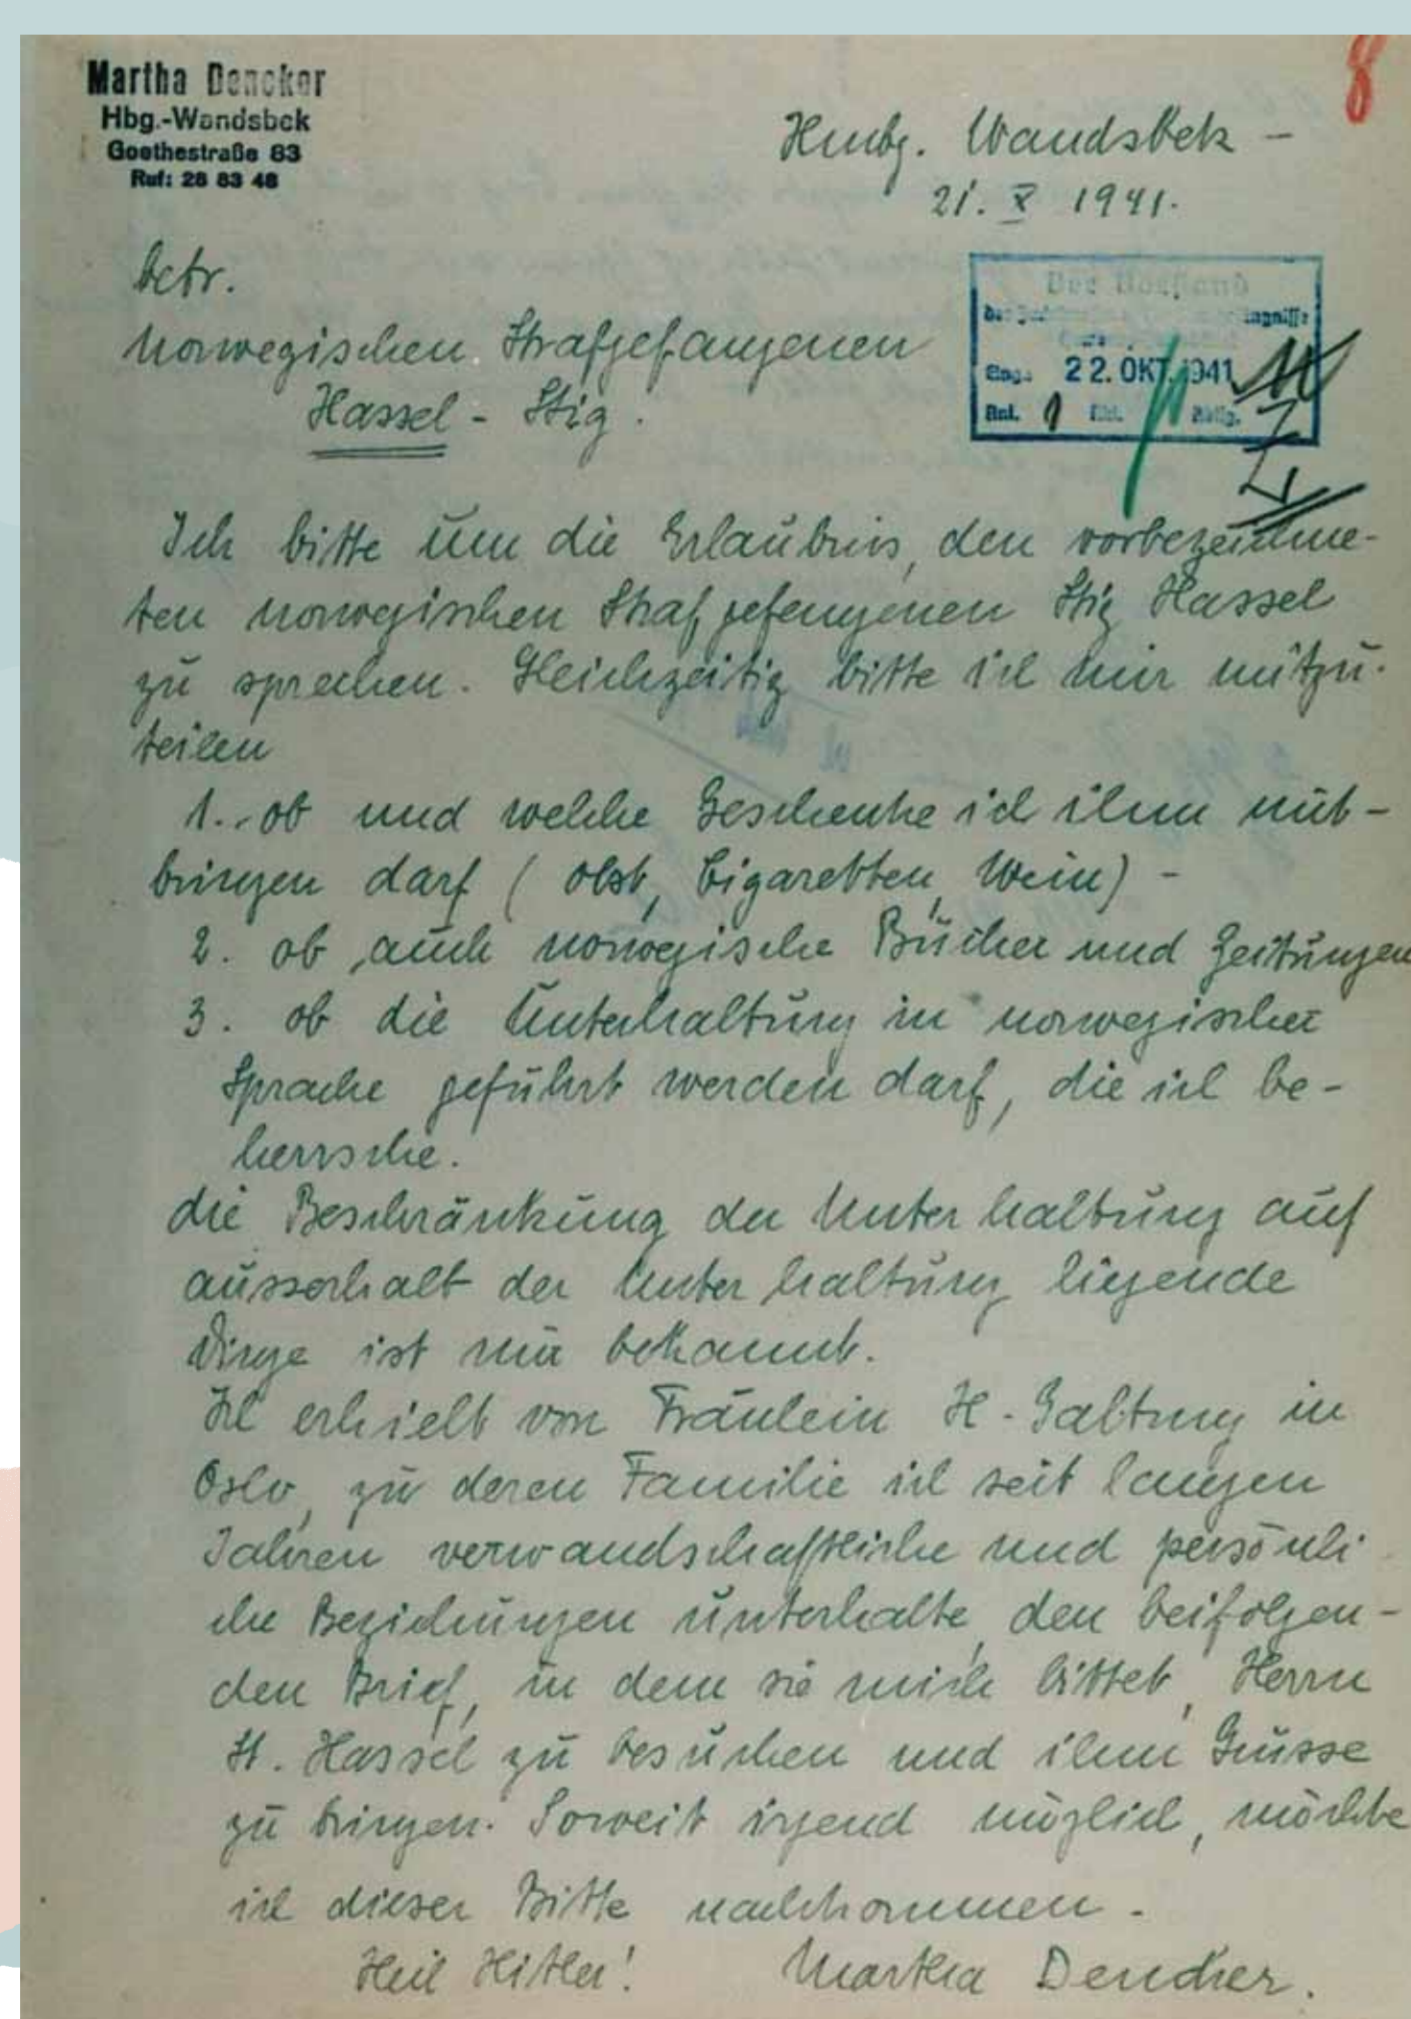 8
Martha Dencker
Hbg.-Wandsbek
Goethestraße 83
Ruf: 28 83 48
Hmbg. Wandsbek -
21. X 1941.
betr.
norwegischen Strafgefangenen
Hassel - Stig.
Der Vorstand
Eing. 22. OKT. 1941
Anl. 1
Ich bitte um die Erlaubnis, den vorbezeichne-
ten norwegischen Strafgefangenen Stig Hassel
zu sprechen. Gleichzeitig bitte ich mir mitzu-
teilen
1. ob und welche Geschenke ich ihm mit-
bringen darf (Obst, Cigaretten, Wein) -
2. ob auch norwegische Bücher und Zeitungen
3. ob die Unterhaltung in norwegischer
Sprache geführt werden darf, die ich be-
herrsche.
die Beschränkung der Unterhaltung auf
ausserhalb der Unterhaltung liegende
Dinge ist mir bekannt.
Ich erhielt von Fräulein H. Galtung in
Oslo, zu deren Familie ich seit langen
Jahren verwandschaftliche und persönli-
che Beziehungen unterhalte, den beifolgen-
den Brief, in dem sie mich bittet, Herrn
St. Hassel zu besuchen und ihm Grüsse
zu bringen. Soweit irgend möglich, möchte
ich dieser Bitte nachkommen.
Heil Hitler! Martha Dencker.